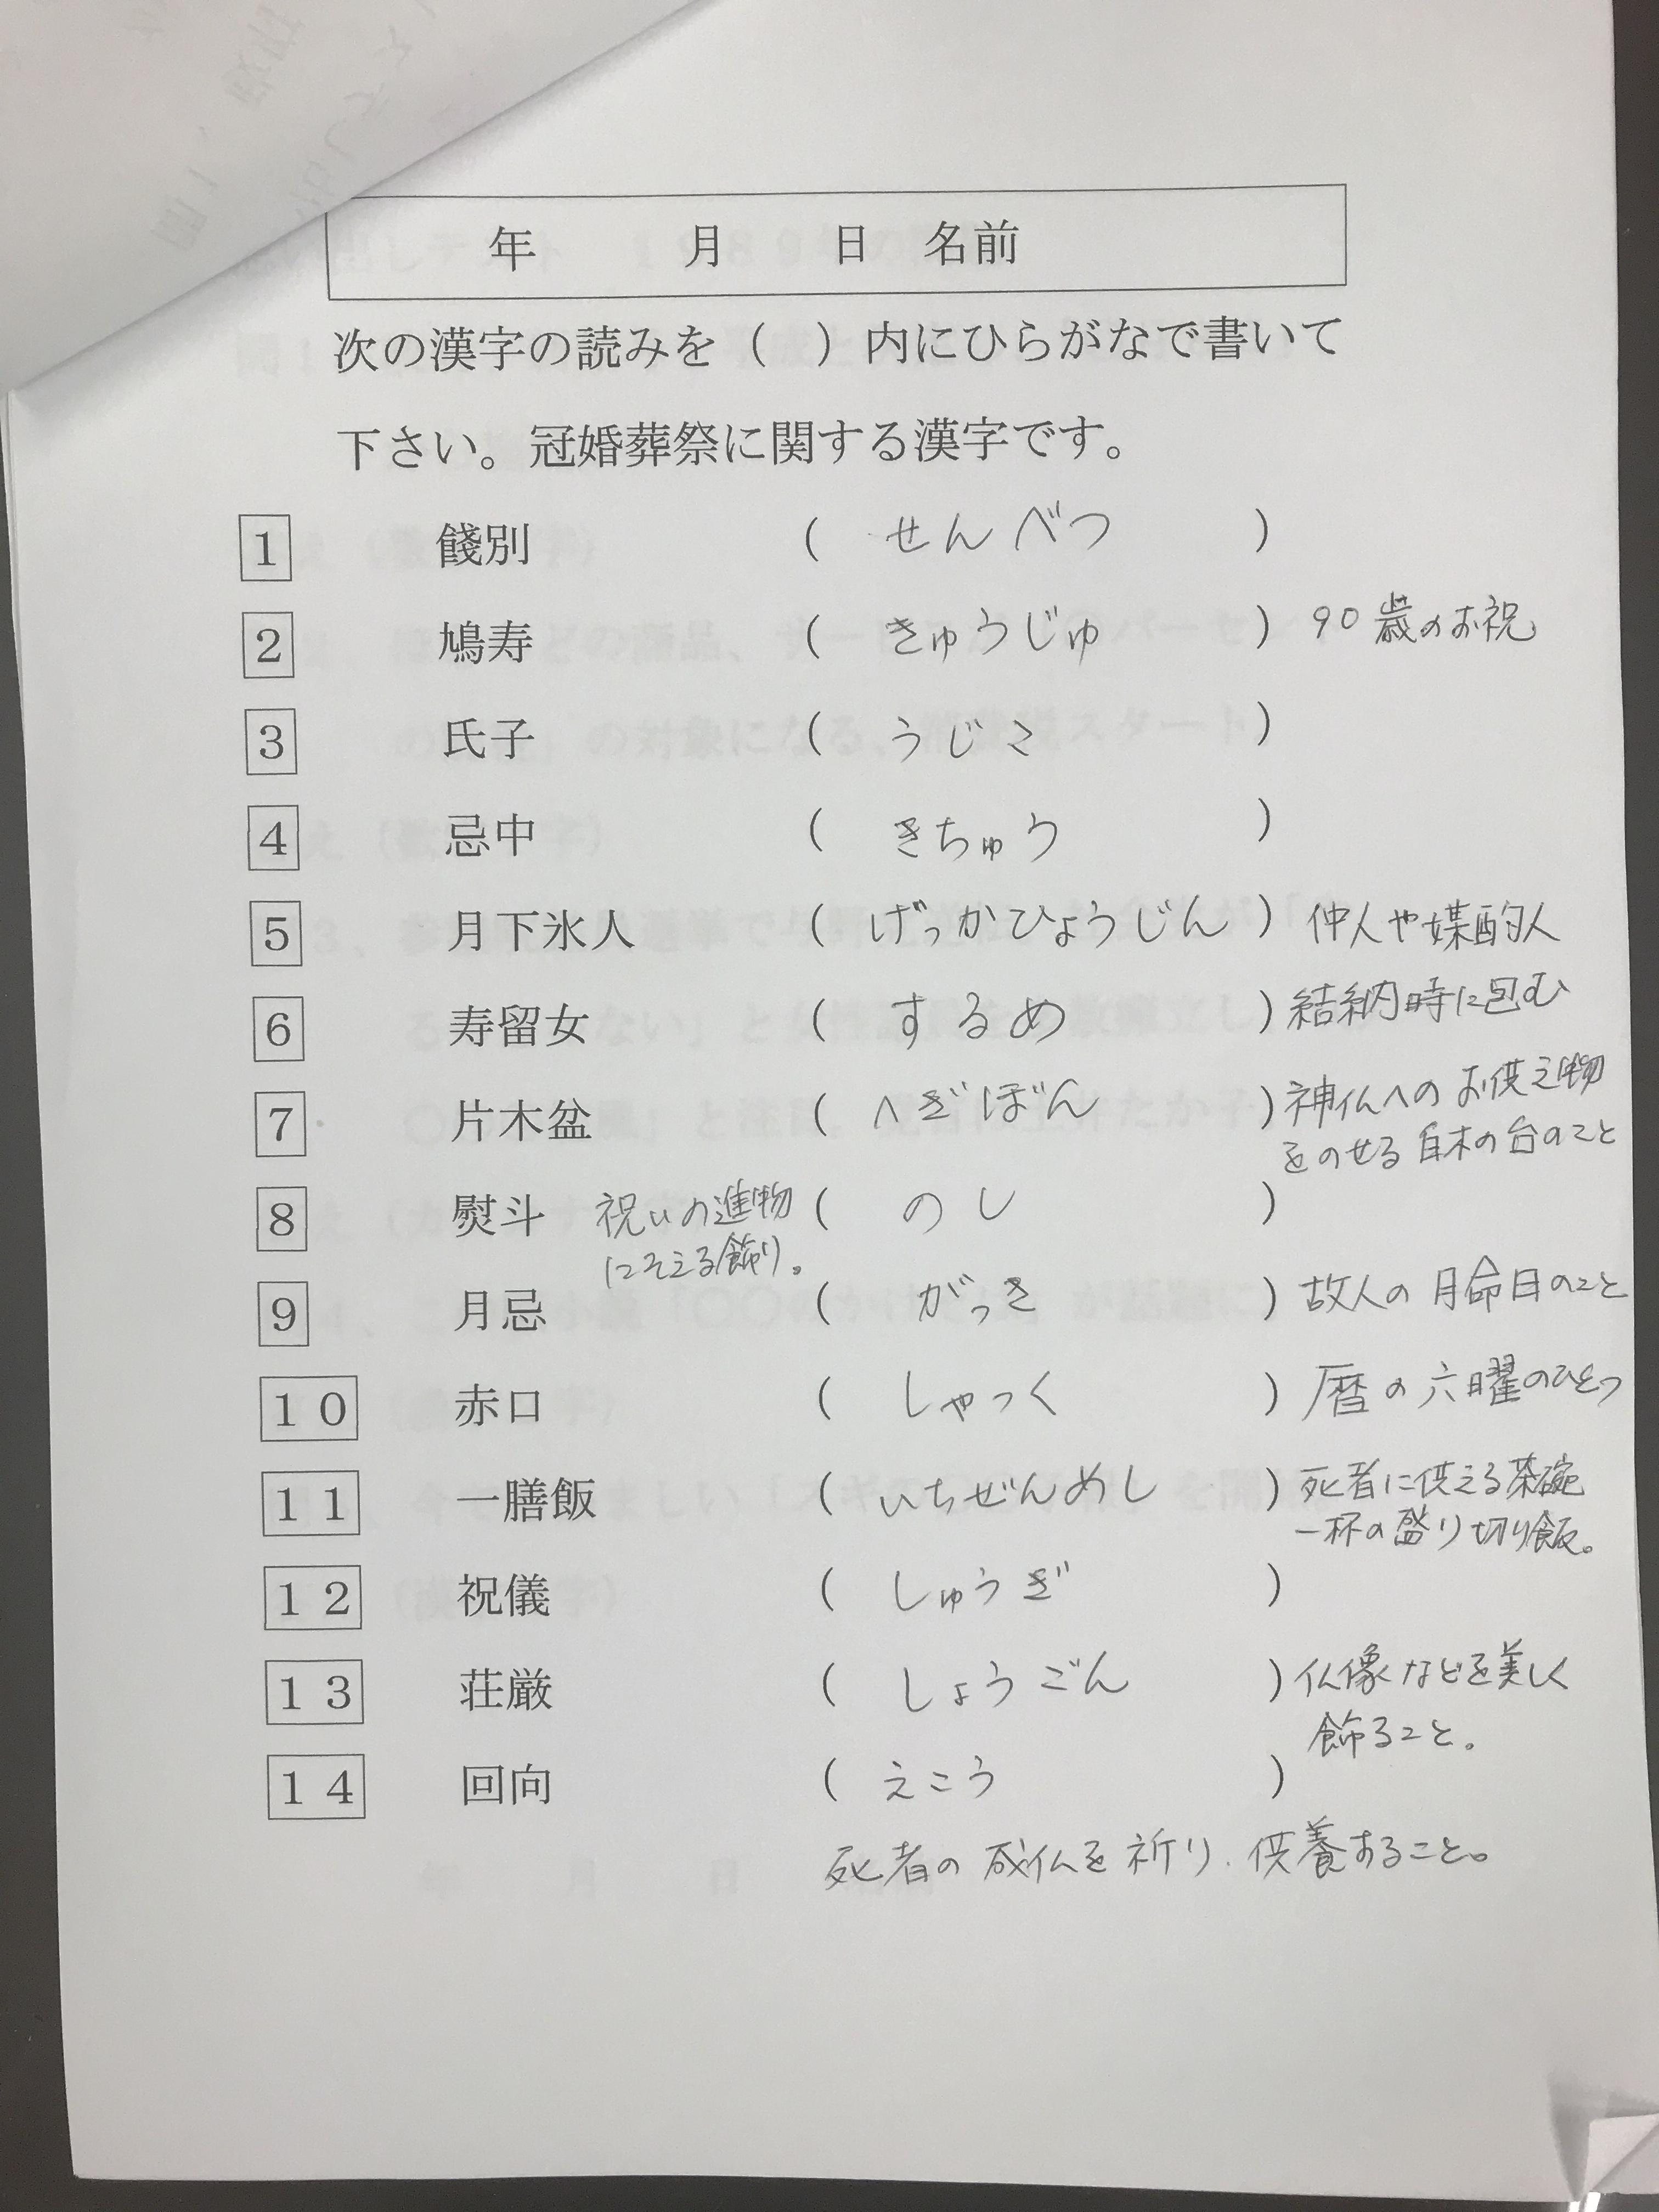 年　月　日　名前
次の漢字の読みを（　）内にひらがなで書いて
下さい。冠婚葬祭に関する漢字です。
1 餞別 （ せんべつ ）
2 鳩寿 （ きゅうじゅ ） 90歳のお祝
3 氏子 （ うじこ ）
4 忌中 （ きちゅう ）
5 月下氷人 （ げっかひょうじん ） 仲人や媒酌人
6 寿留女 （ するめ ） 結納時に包む
7 片木盆 （ へぎぼん ） 神仏へのお供え物
をのせる白木の台のこと
8 熨斗 祝いの進物 （ のし ）
にそえる飾り。
9 月忌 （ がっき ） 故人の月命日のこと
10 赤口 （ しゃっく ） 暦の六曜のひとつ
11 一膳飯 （ いちぜんめし ） 死者に供える茶碗
一杯の盛り切り飯。
12 祝儀 （ しゅうぎ ）
13 荘厳 （ しょうごん ） 仏像などを美しく
飾ること。
14 回向 （ えこう ）
死者の成仏を祈り、供養すること。